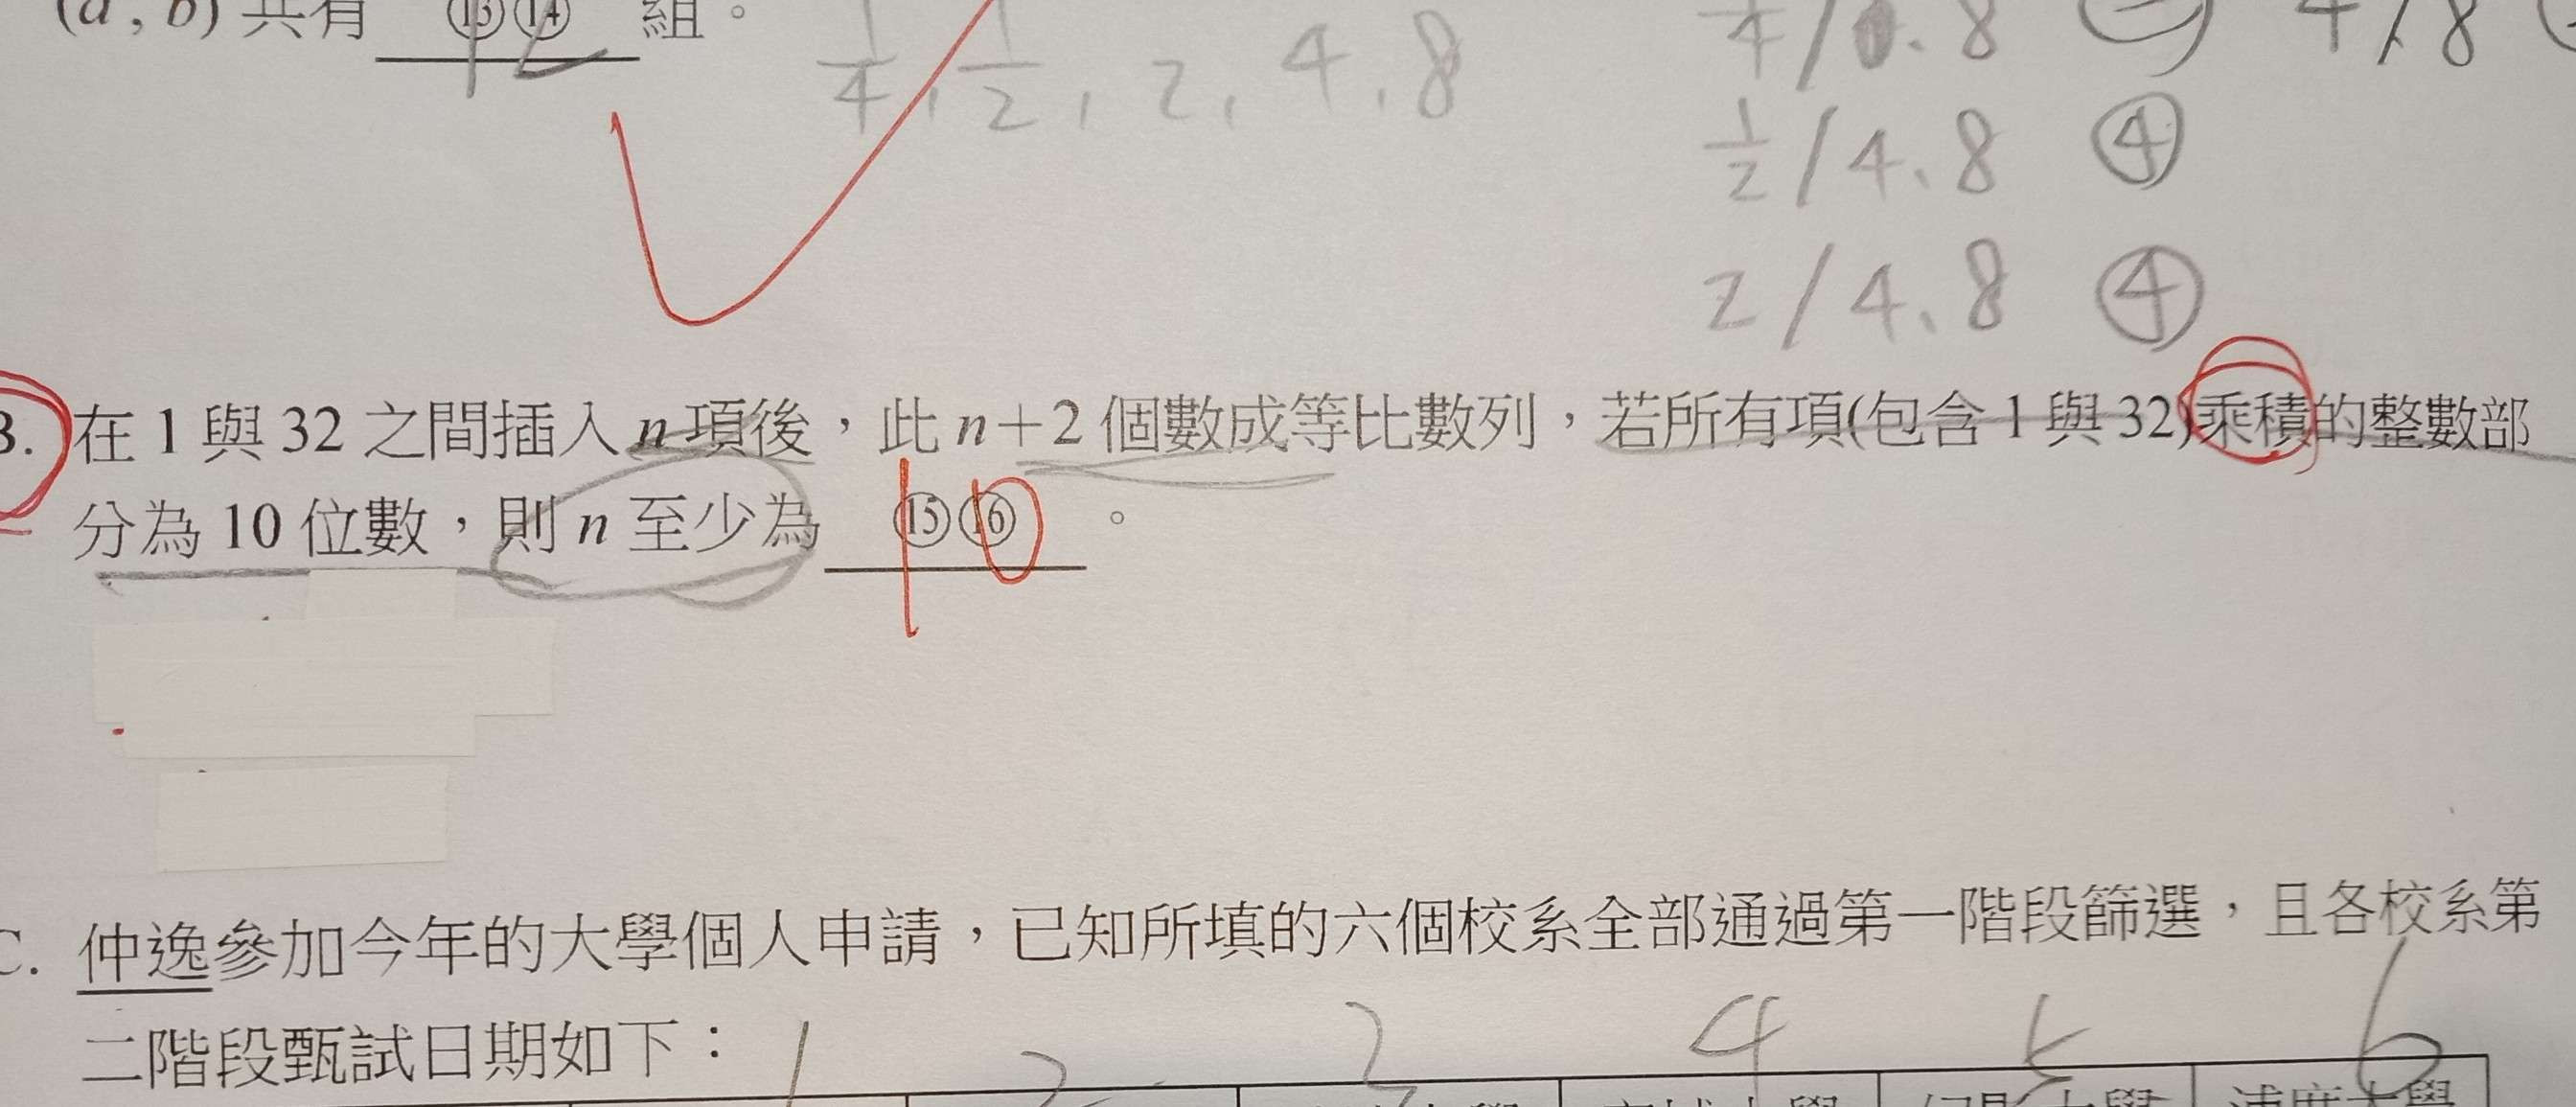 (a, b) 共有 ⑬⑭ 組。
12
1/4, 1/2, 2, 4, 8
4/8
1/2 / 4、8 ④
2 / 4、8 ④
B. 在 1 與 32 之間插入 n 項後，此 n＋2 個數成等比數列，若所有項(包含 1 與 32)乘積的整數部
分為 10 位數，則 n 至少為 ⑮⑯ 。
10
C. 仲逸參加今年的大學個人申請，已知所填的六個校系全部通過第一階段篩選，且各校系第
二階段甄試日期如下：
1 2 3 4 5 6